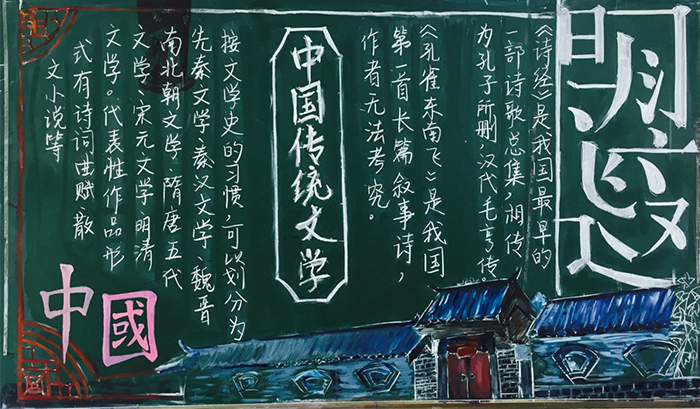 明
《诗经》是我国最早的
一部诗歌总集,相传
为孔子所删,汉代毛亨传。
《孔雀东南飞》是我国
第一首长篇叙事诗,
作者无法考究。
中国传统文学
按文学史的习惯,可以划分为
先秦文学、秦汉文学、魏晋
南北朝文学、隋唐五代
文学、宋元文学、明清
文学。代表性作品形
式有诗词曲赋散
文小说等
中國